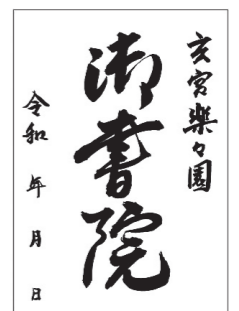 玄宮樂々園
御書院
令和 年 月 日